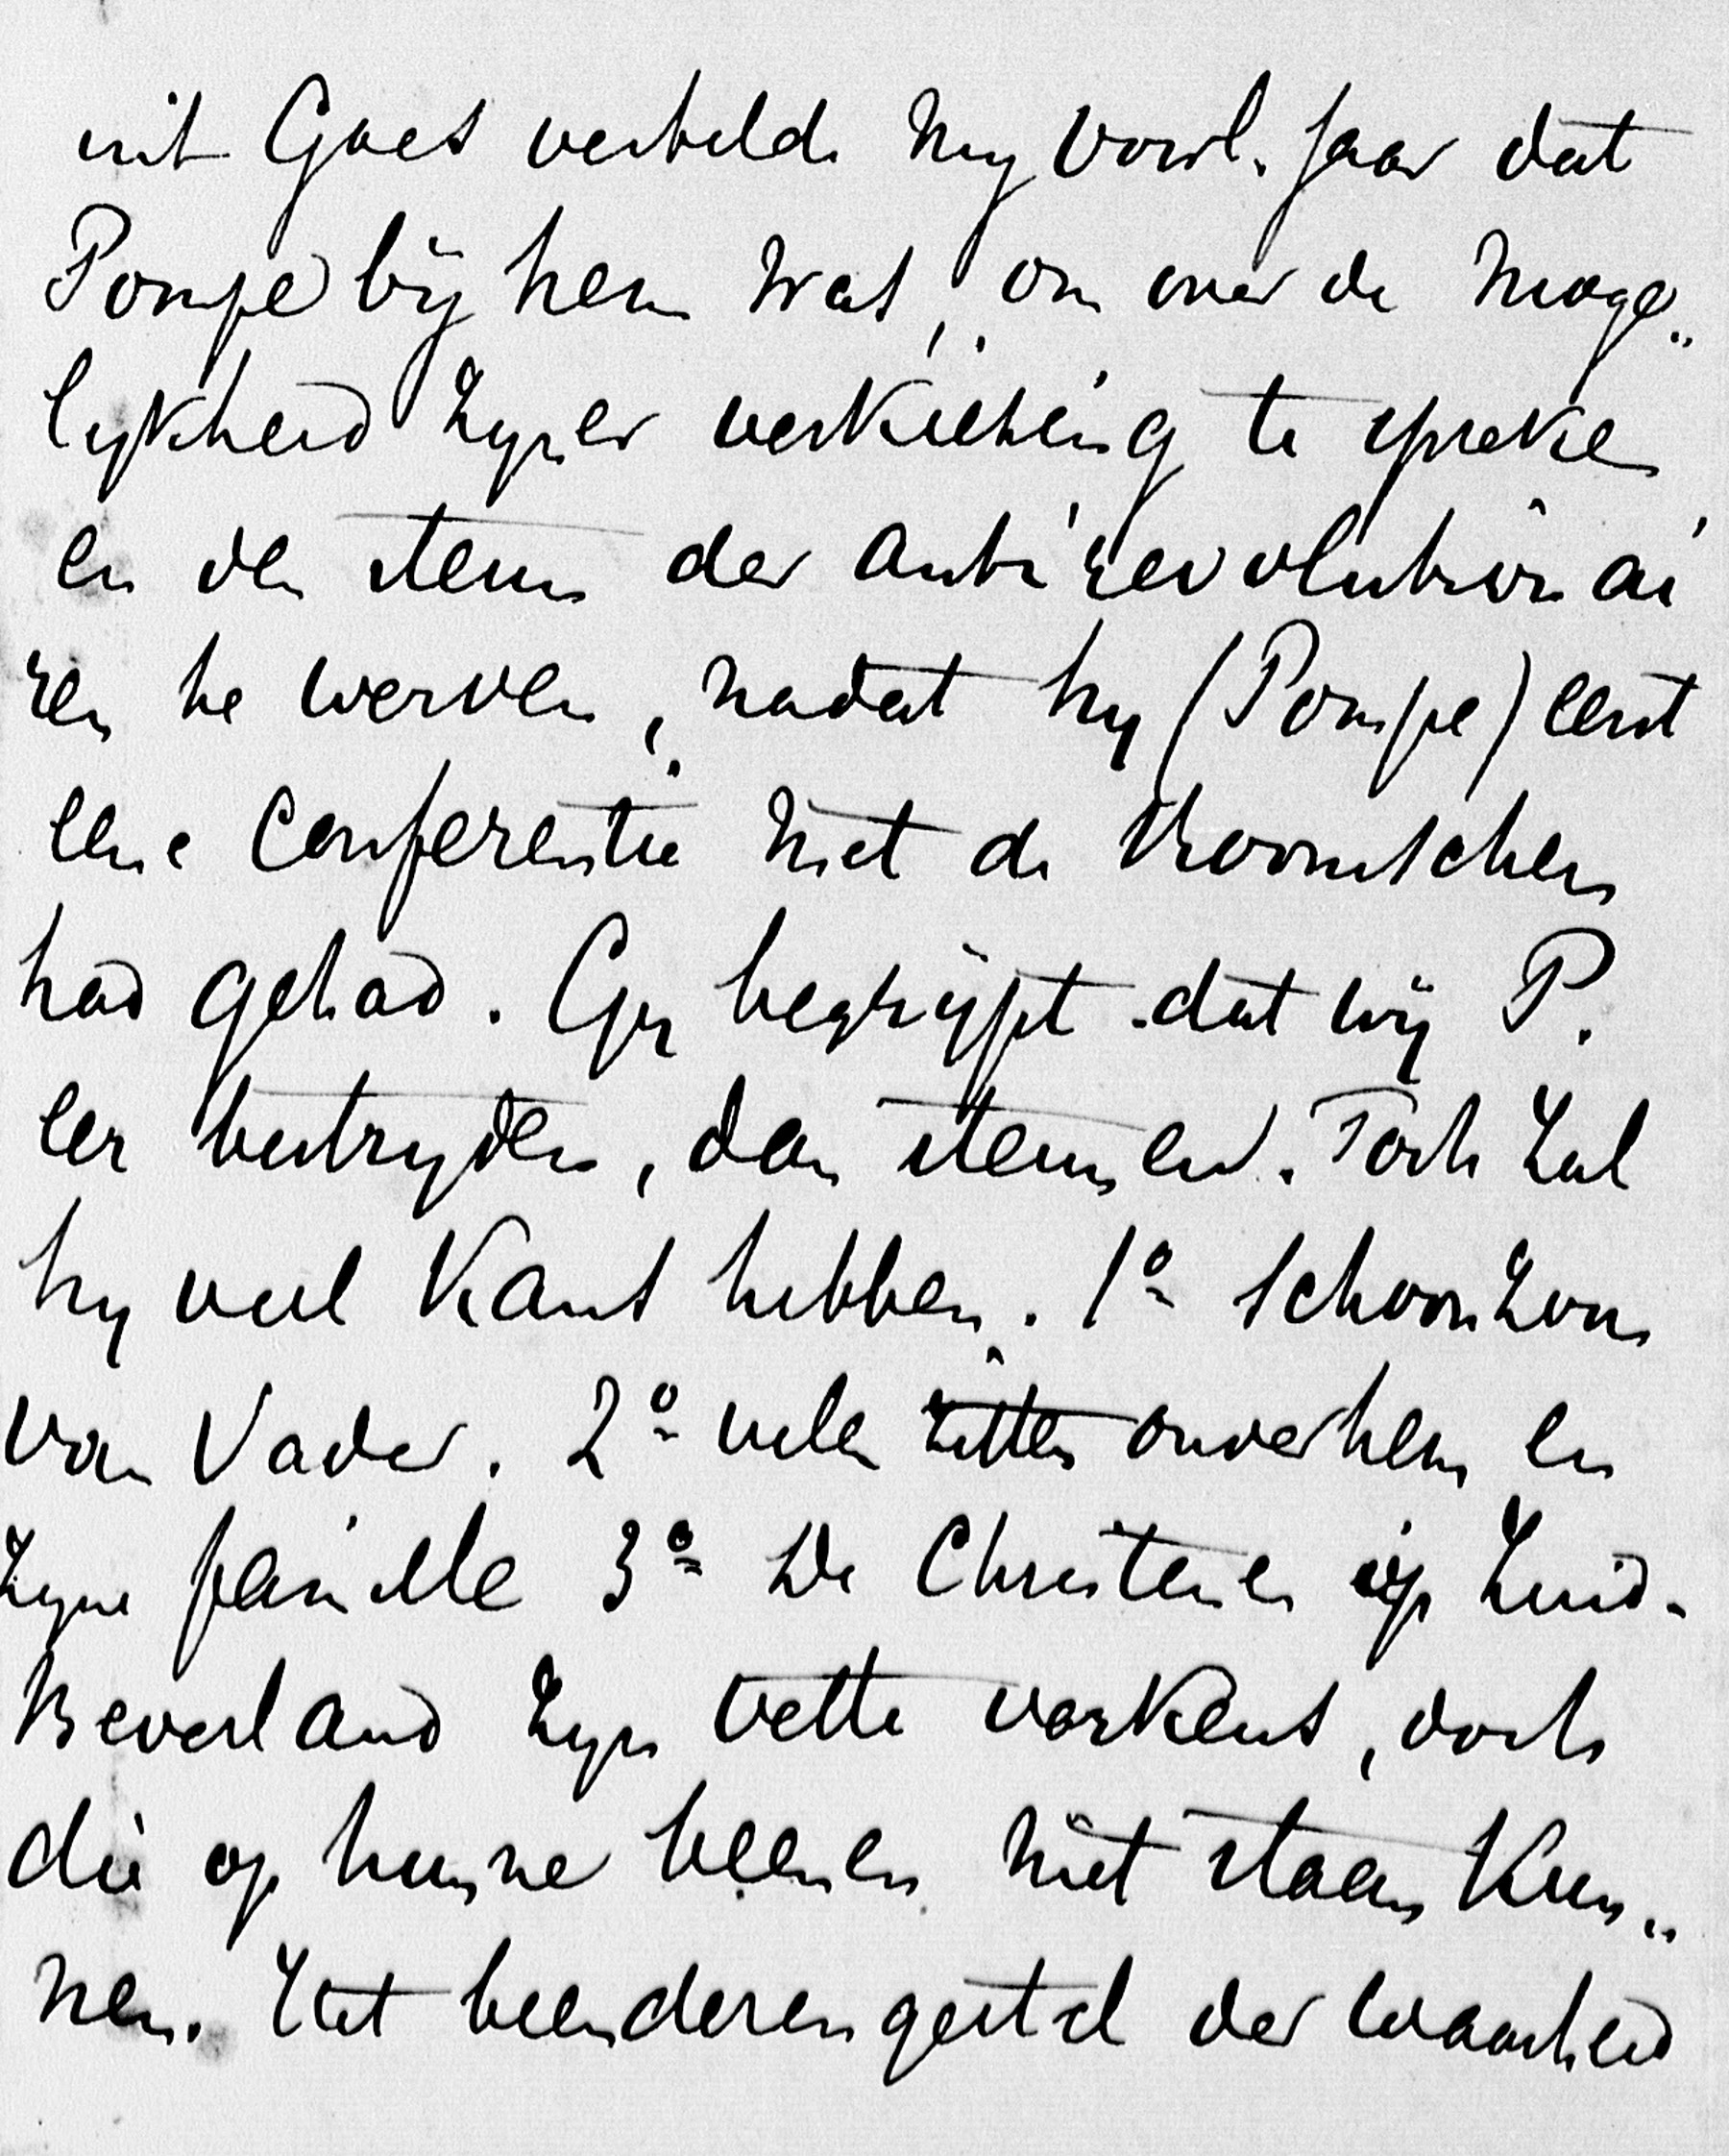 uit Goes vertelde my voorl. jaar dat
Pompe bij hem was, om over de moge„
lykheid zyner verkiezing te spreken
en de stem der antirevolutionai
ren te werven, nadat hy (Pompe) eerst
eene conferentie met de Roomschen
had gehad. Gy begrijpt dat wij P.
eer bestryden, dan steunen. Toch zal
hy veel kans hebben. 1º schoonzoon
van Vader. 2º velen zitten onder hem en
zyne familie 3º De Christenen op Zuid-
Beverland zyn vette varkens, doch
die op hunne beenen niet staan kun„
nen. Het beenderengestel der waarheid